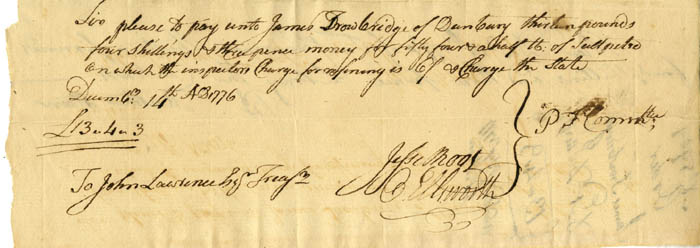 Sir please to pay unto James Trowbridge of Danbury thirteen pounds
four shillings & three pence money for fifty four & a half lb. of Saltpetre
on which the inspectors Charge for refining is 6/ & Charge the State
Decembr 14th AD 1776
£13 „ 4 „ 3
P. T. Committe
Jesse Root
O Ellsworth
To John Lawrence Esqr Treasr